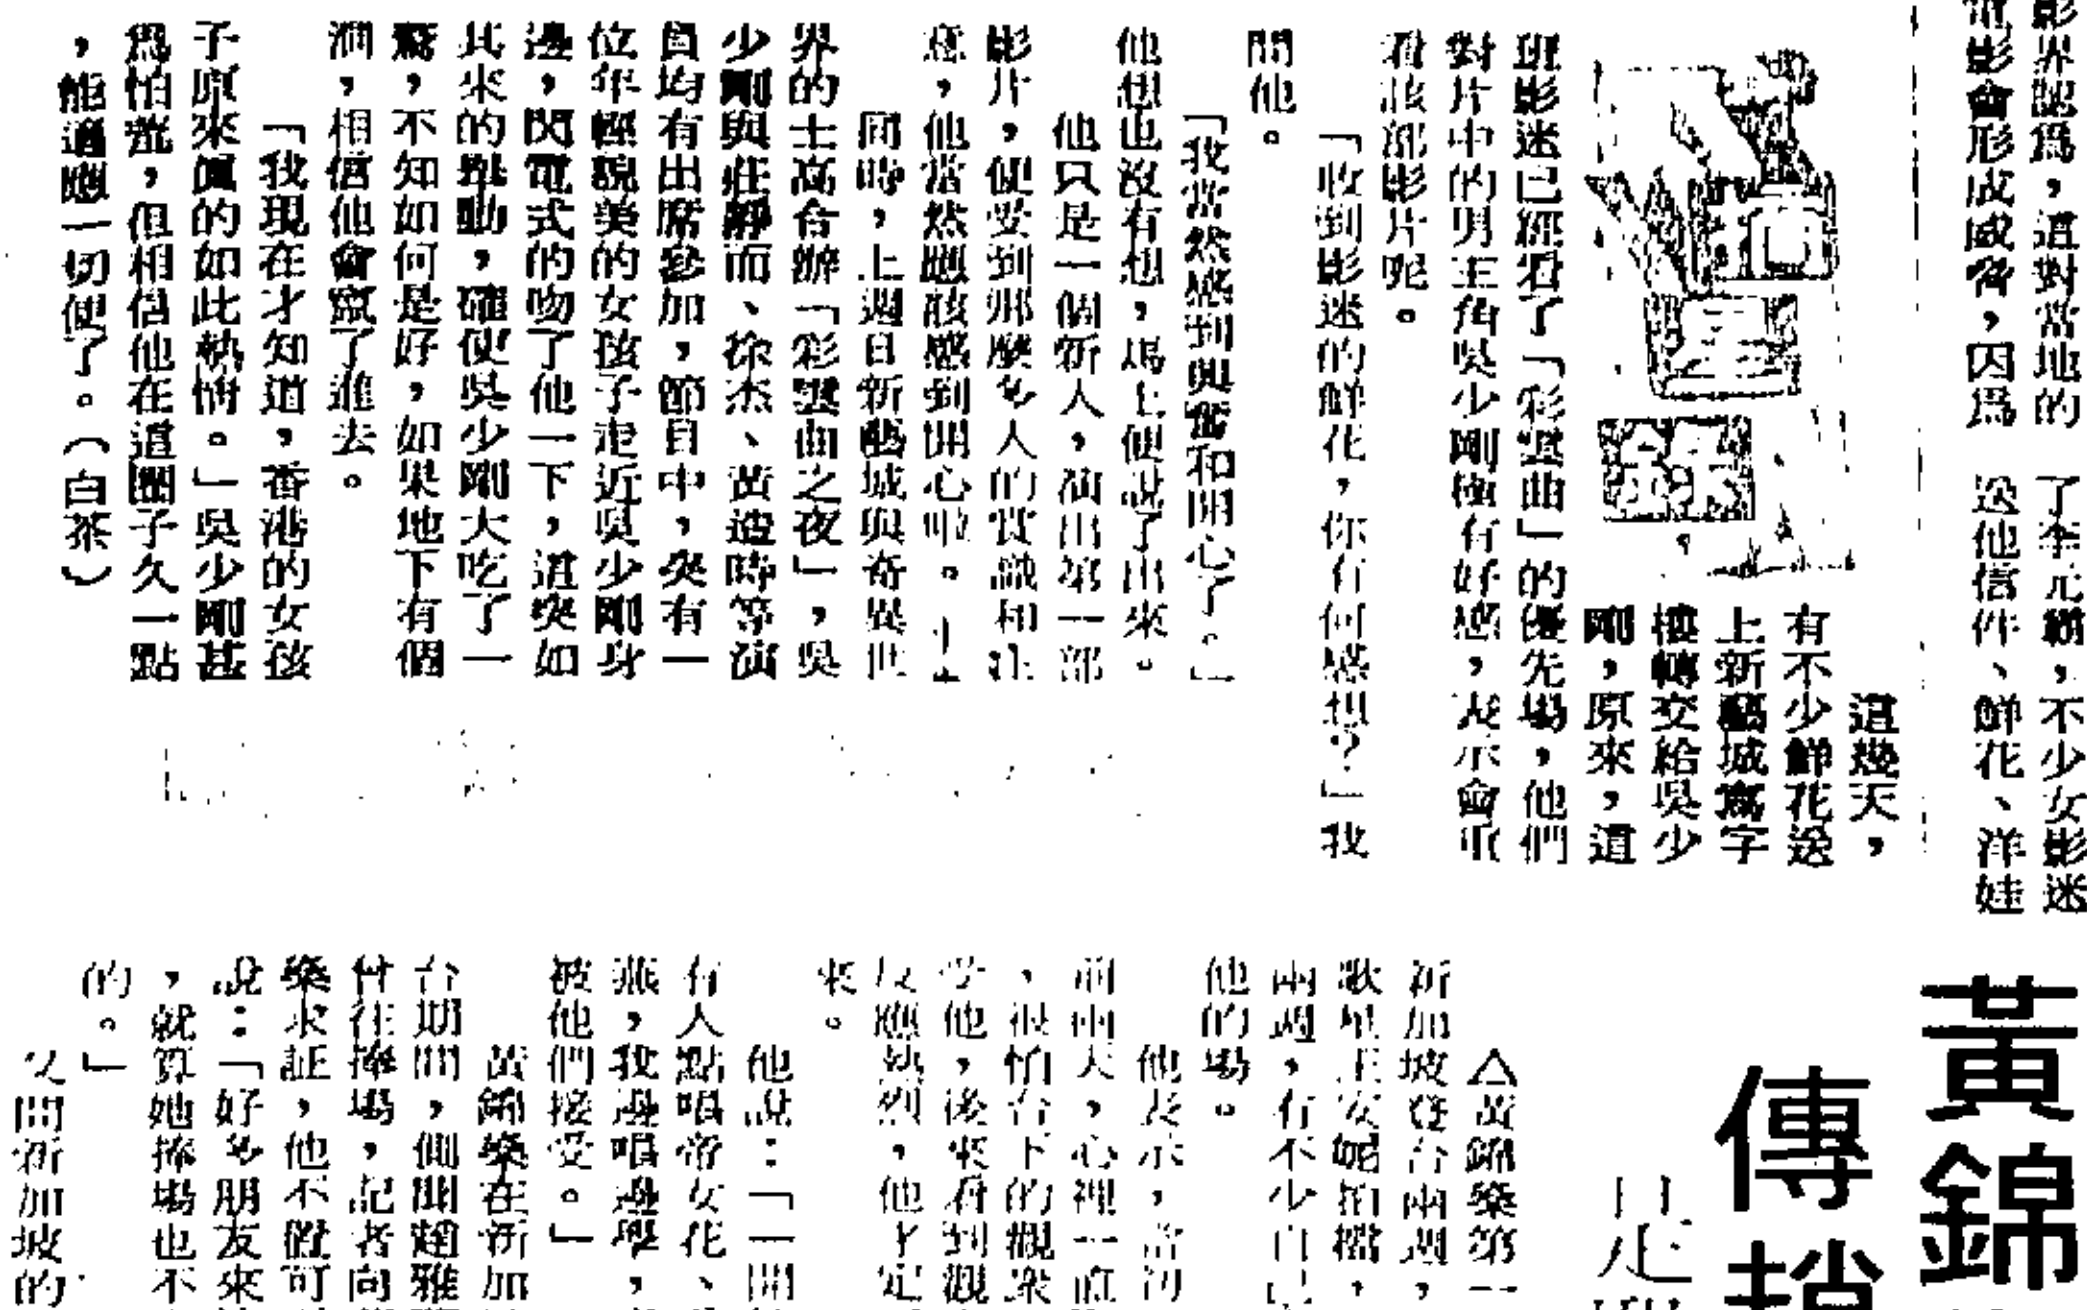 影界認爲，這對當地的
電影會形成威脅，因爲
了李元霸，不少女影迷
送他信件、鮮花、洋娃
這幾天，
有不少鮮花送
上新藝城寫字
樓轉交給吳少
剛，原來，這
班影迷已經看了「彩雲曲」的優先場，他們
對片中的男主角吳少剛極有好感，表示會重
看該部影片呢。
「收到影迷的鮮花，你有何感想？」我
問他。
「我當然感到興奮和開心了。」
他想也沒有想，馬上便說了出來。
他只是一個新人，演出第一部
影片，便受到那麼多人的賞識和注
意，他當然應該感到開心啦。
同時，上週日新藝城與奇異世
界的士高合辦「彩雲曲之夜」，吳
少剛與莊靜而、徐杰、黃造時等演
員均有出席參加，節目中，突有一
位年輕貌美的女孩子走近吳少剛身
邊，閃電式的吻了他一下，這突如
其來的舉動，確使吳少剛大吃了一
驚，不知如何是好，如果地下有個
洞，相信他會窿了進去。
「我現在才知道，香港的女孩
子原來眞的如此熱情。」吳少剛甚
爲怕羞，但相信他在這圈子久一點
，能適應一切便了。（白茶）
黃錦
傳趙
△黃錦燊第一
新加坡登台兩週，
歌星王安妮拍檔，
兩週，有不少自己
他的場。
他表示，當初
前兩天，心裡一直
，很怕台下的觀衆
受他，後來看到觀
反應熱烈，他才定
來。
他說：「一開
有人點唱帝女花、
燕，我邊唱邊學，
被他們接受。」
黃錦燊在新加
台期間，側聞趙雅
曾往捧場，記者向
燊求証，他不置可
說：「好多朋友來
，就算她捧場也不
的。」
又問新加坡的